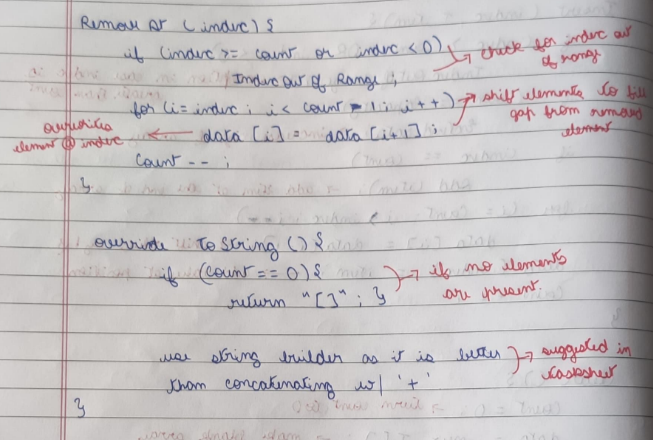 Remove At (index) {
if (index >= count or index < 0)
Index out of Range ;
check for index out
of range
for (i = index ; i < count - 1; i++)
data [i] = data [i+1] ;
shift elements to fill
gap from removed
element
overwrites
element @ index
count -- ;
}
override ToString () {
if (count == 0) {
return "[]" ; }
if no elements
are present.
use string builder as it is better
than concatenating w/ '+'
suggested in
tasksheet
}